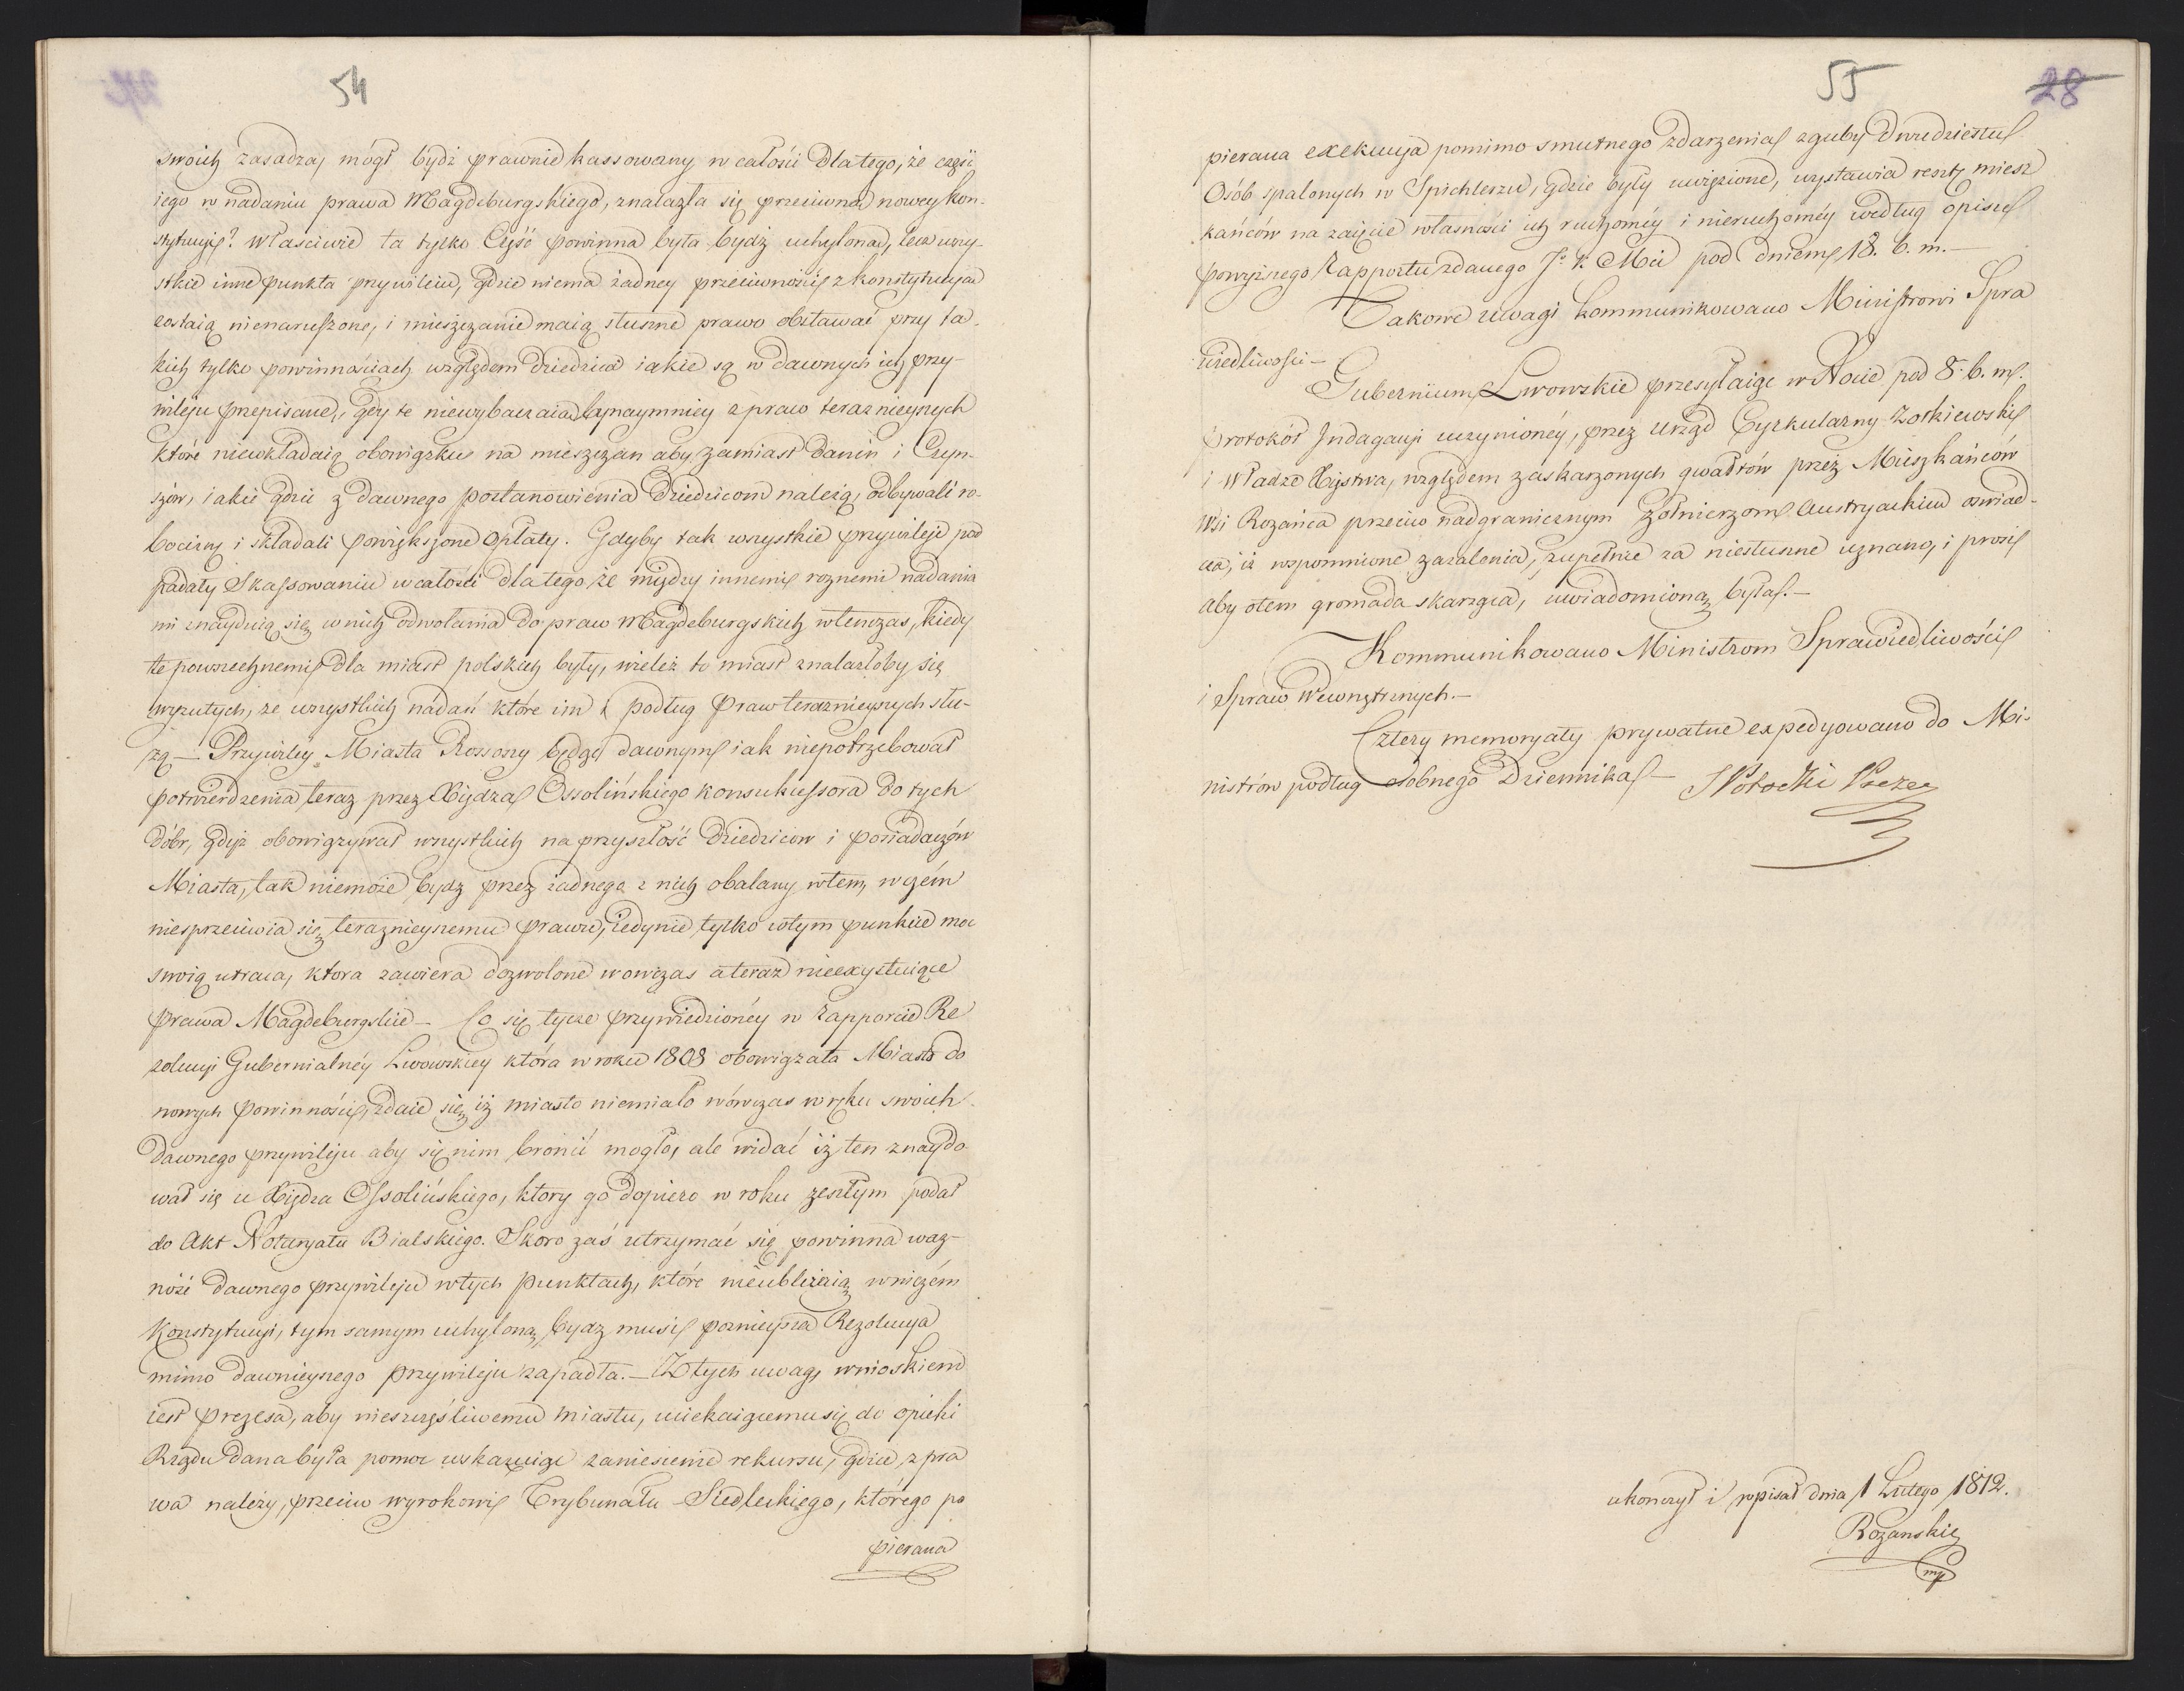 54
swoich zasadza, mógł bydź prawnie kassowany w całości dlatego, że część
iego w nadaniu prawa Magdeburgskiego, znalazła się przeciwna nowey kon-
stytucyi? Właściwie ta tylko Część powinna była bydź uchylona, lecz wszy-
stkie inne punkta przywileiu, gdzie niema żadney przeciwności z konstytucyą
zostaią nienaruszone, i mieszczanie maią słuszne prawo obstawać przy ta-
kich tylko powinnościach względem dziedzica iakie są w dawnych ich przy-
wileju przepisane, gdy te niewybaczaią bynaymniey z praw teraznieyszych
które niewkładaią obowiązku na mieszczan aby zamiast danin i Czyn-
szów, iakie gdzie z dawnego postanowienia dziedzicom należą, odbywali ro-
bocizny i składali powiększone opłaty. Gdyby tak wszystkie przywileje pod
padały Skassowaniu w całości dlatego że między innemi roznemi nadania
mi znayduią się w nich odwołania do praw Magdeburgskich wtenczas, kiedy
te powszechnemi dla miast polskich były, wieleż to miast znalazłoby się
wyzutych, ze wszystkich nadań które im i podług Praw teraznieyszych słu-
żą — Przywiley Miasta Rossoszy będąc dawnym iak niepotrzebował
potwierdzenia teraz przez Xiędza Ossolińskiego konsukcessora do tych
dóbr, gdyż obowiązywał wszystkich na przyszłość dziedziców i posiadaczów
Miasta, tak niemoże bydź przez żadnego z nich obalany wtem, w czém
niesprzeciwia się teraznieyszemu prawu, iedynie tylko wtym punkcie moc
swoią utraca, ktora zawiera dozwolone wowczas a teraz nieexystuiące
prawa Magdeburgskie — Co się tycze przywiedzionéy w Rapporcie Re
zolucyi Gubernialnéy Lwowskiey która w roku 1808 obowiązała Miasto do
nowych powinności, zdaie się iż miasto niemiało wówczas w ręku swoich
dawnego przywileju aby się nim bronić mogło, ale widać iż ten znaydo
wał się u Xiędza Ossolińskiego, ktory go dopiero w roku zeszłym podał
do Akt Notaryatu Bialskiego. Skoro zaś utrzymać się powinna waż-
ność dawnego przywileju wtych punktach, które nieubliżaią wniczém
Konstytucyi, tym samym uchyloną bydź musi poznieysza Rezolucya
mimo dawnieyszego przywileju zapadła. — Z tych uwag, wnioskiem
iest prezesa, aby nieszczęśliwemu miastu, uciekaiącemu się do opieki
Rządu dana była pomoc wskazuiąc zaniesienie rekursu, gdzie z pra
wa należy, przeciw wyrokowi Trybunału Siedleckiego, którego po
pierana
55
28
pierana exekucya pomimo smutnego zdarzenia zguby dwudziestu
Osób spalonych w Spichlerzu, gdzie były uwięzione, wystawia resztę miesz
kańców na zaięcie własności ich ruchoméy i nieruchoméy według opisu
powyższego Rapportu zdanego J. K. Mci pod dniem 18. b. m. —
Takowe uwagi kommunikowano Ministrowi Spra
wiedliwości —
Gubernium Lwowskie przesyłaiąc w Nocie pod 8. b. m.
protokół Jndagacyi uczynionéy, przez Urząd Cyrkularny Zołkiewski
i Władze Xięstwa, względem zaskarzonych gwałtów przez Mieszkańców
Wsi Rozańca przeciw nadgranicznym żołnierzom Austryackim oswiad-
cza, iż wspomnione zazalenia, zupełnie za niesłuszne uznano, i prosi
aby otem gromada skarząca, uwiadomioną była. —
Kommunikowano Ministrom Sprawiedliwości
i Spraw Wewnętrznych. —
Cztery memoryały prywatne expedyowano do Mi-
nistrów podług osobnego Dziennika — S Potocki Prezes
ukonczył i wpisał dnia 1 Lutego 1812.
Rozanski
mp